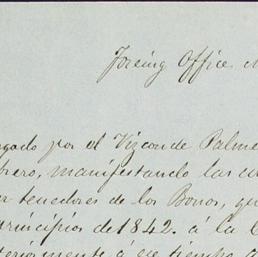 Foreing Office
gado por el Vizconde Palme
brero, manifestando las
tenedores de los Bonos, qu
principios de 1842. á la
teriormente á ese tiempo